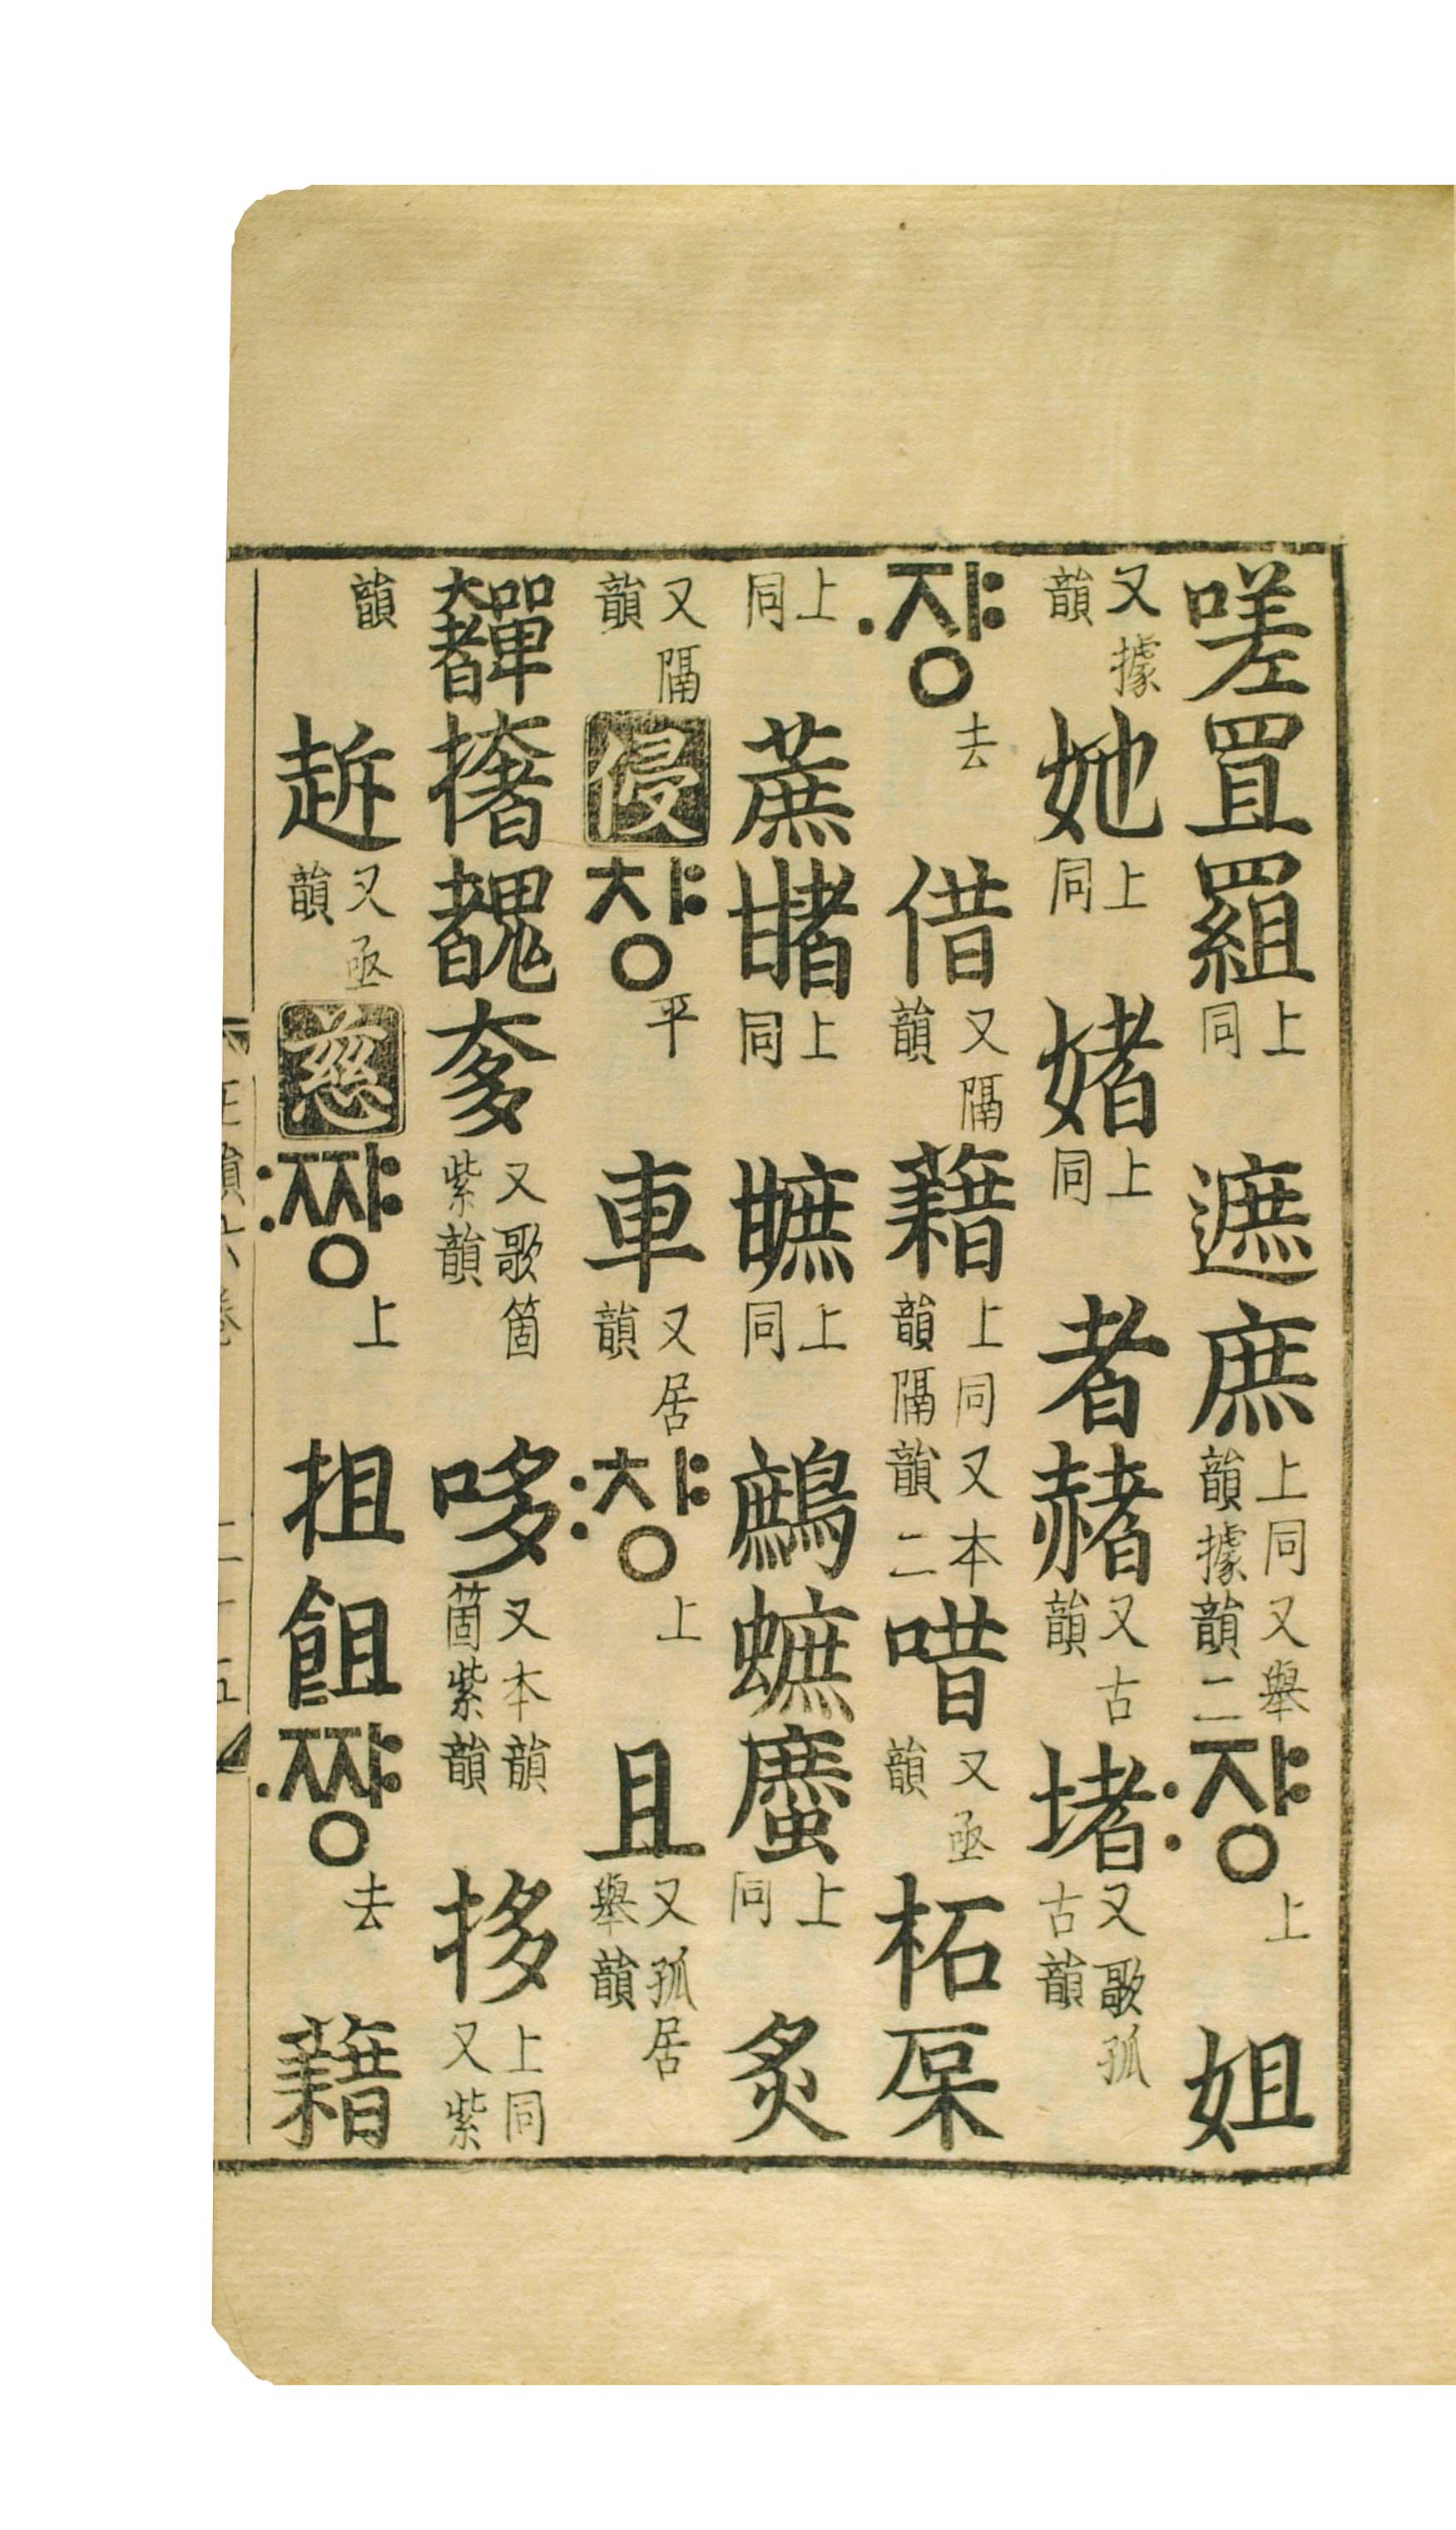 嗟罝䍈上同遮庶上同又舉韻據韻二쟝〯上姐
又據韻她上同媎上同者赭又古韻堵又歌孤古韻
쟝〮去借又隔韻藉上同又本韻隔韻二唶又亟韻柘
上同蔗上同上同鷓蟅䗪上同炙
又隔韻侵챵平車又居韻챵〯上且又孤居舉韻
奲撦奓又歌箇紫韻哆又本韻箇紫韻拸上同又紫
韻又亟韻慈쨩〯上抯飷쨩〮去藉